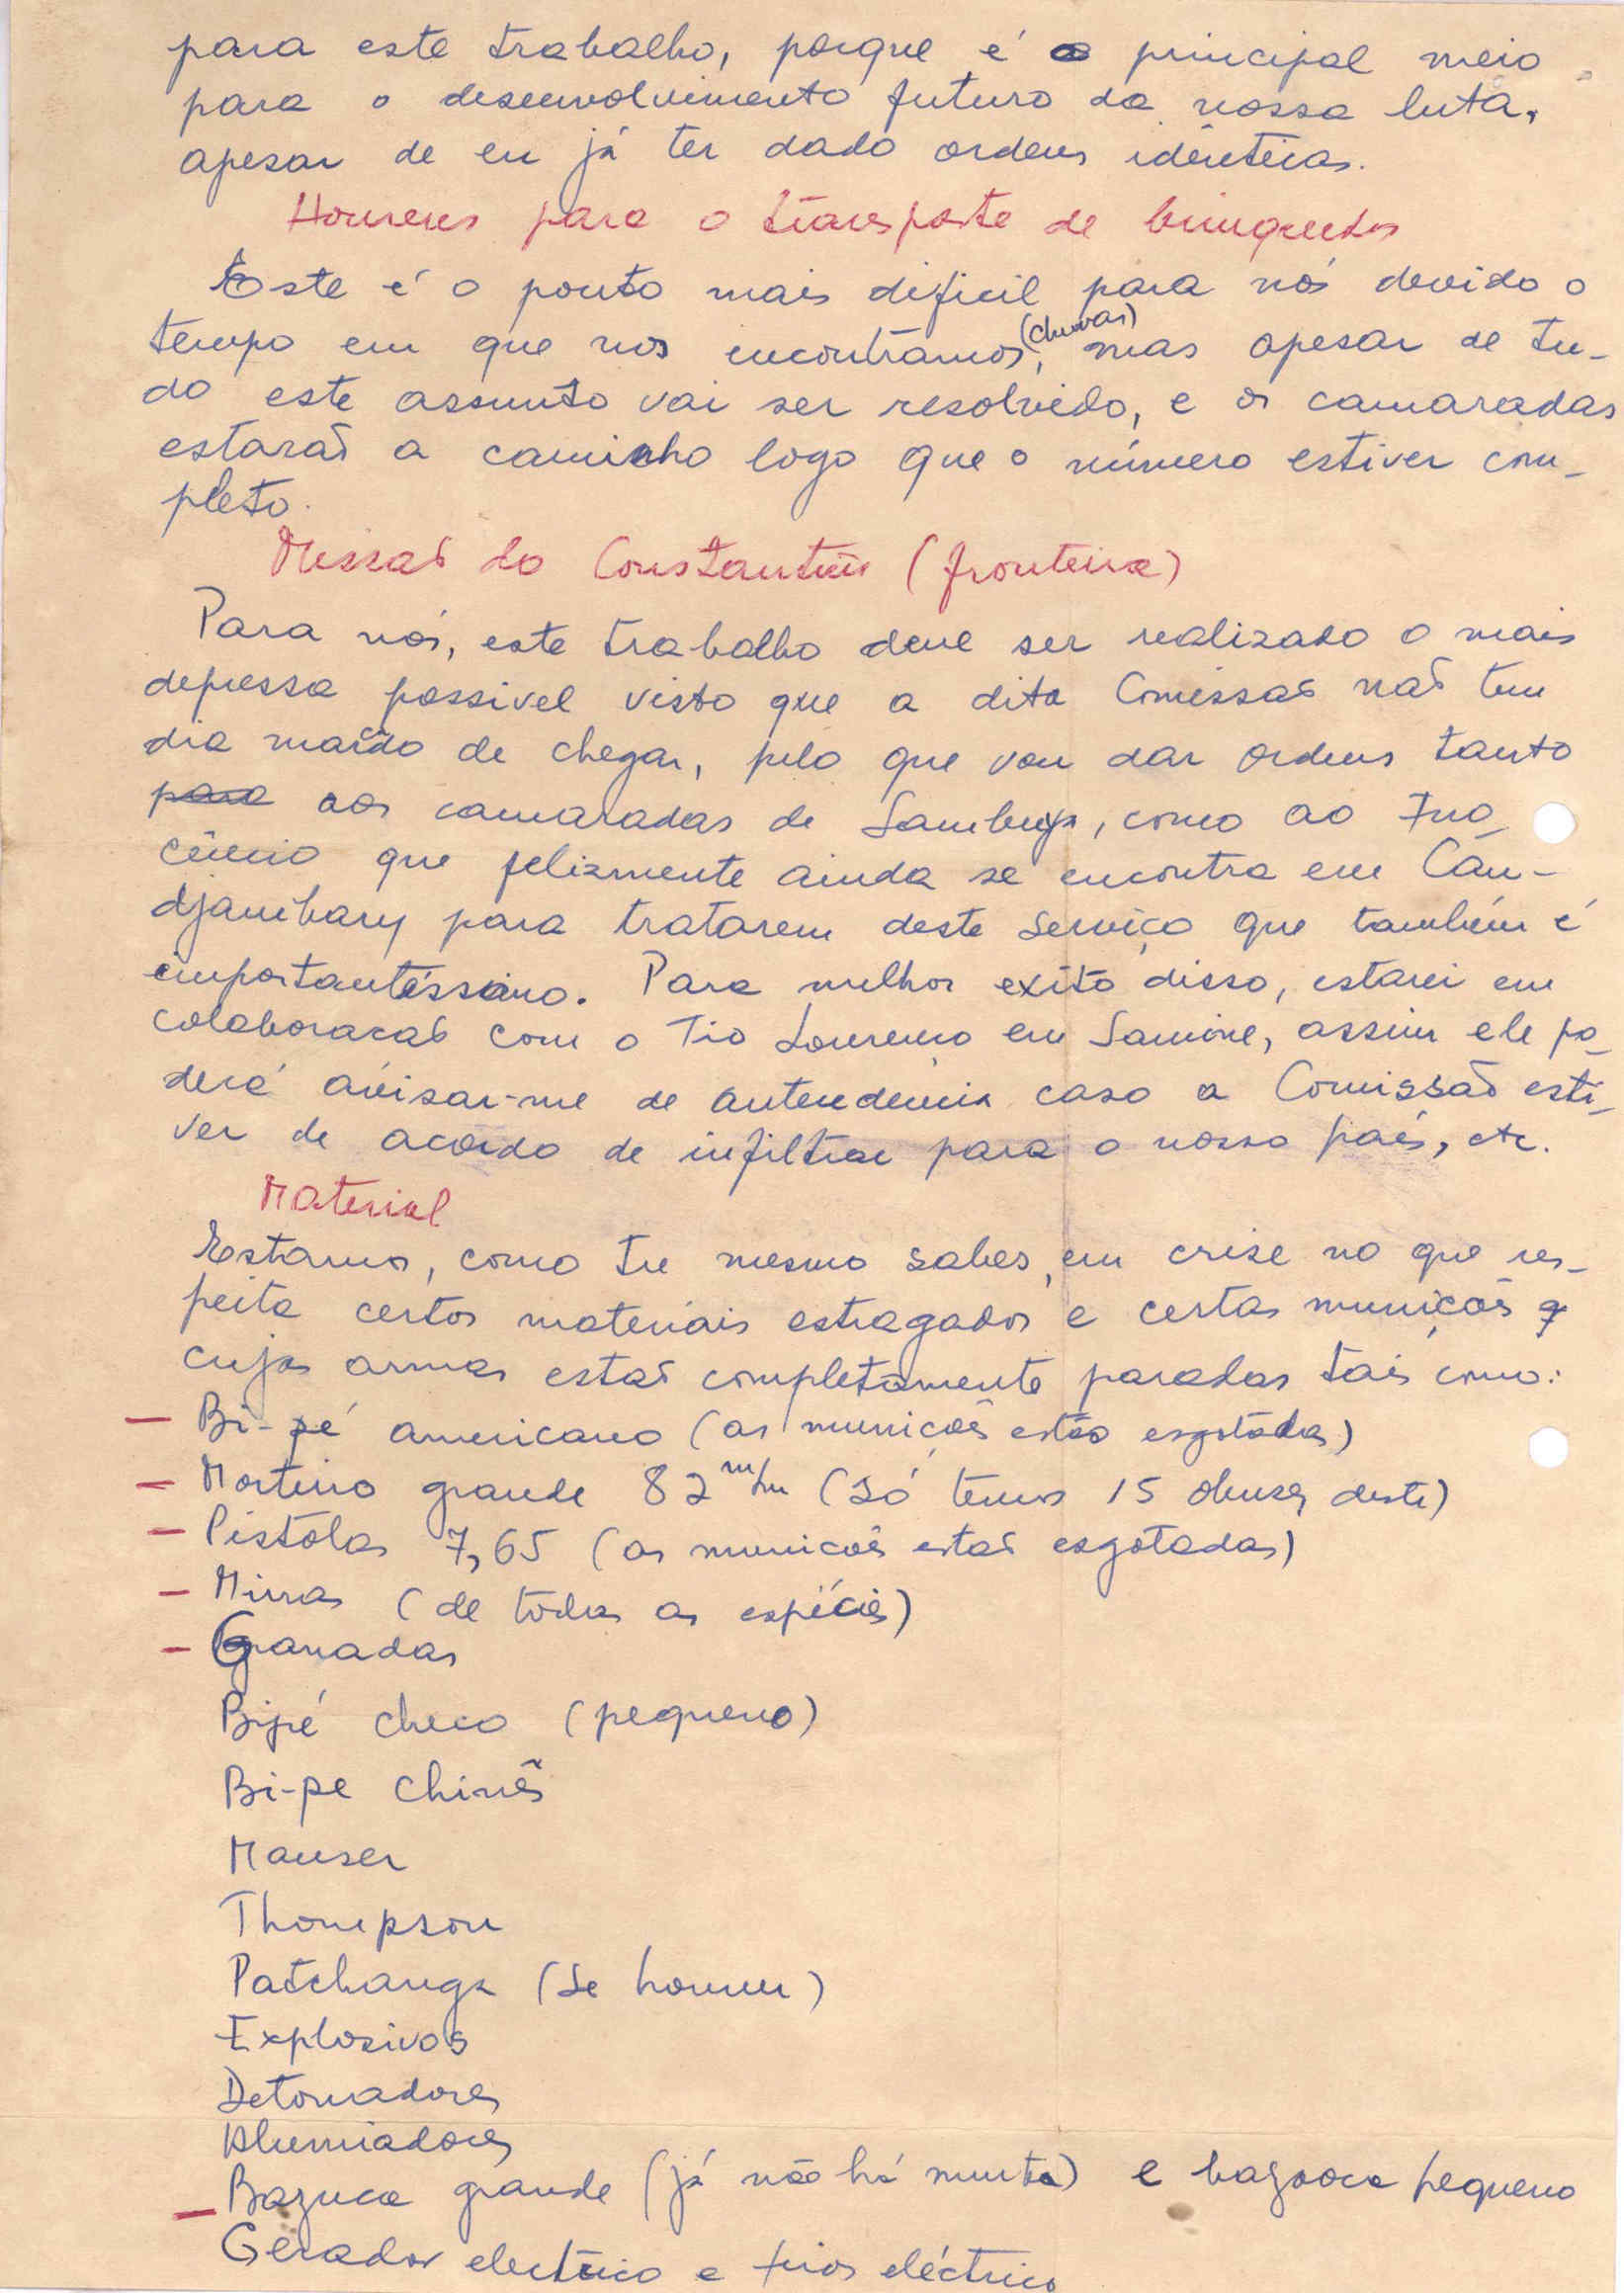 para este trabalho, porque é o principal meio
para o desenvolvimento futuro da nossa luta,
apesar de eu já ter dado ordens idênticas.
Homens para o transporte de brinquedos
Este é o ponto mais dificil para nós devido o
tempo em que nos encontramos (chuvas), mas apesar de tu-
do este assunto vai ser resolvido, e os camaradas
estarão a caminho logo que o número estiver com-
pleto.
Missão do Constantino (fronteira)
Para nós, este trabalho deve ser realizado o mais
depressa possivel visto que a dita Comissão não tem
dia marcado de chegar, pelo que vou dar ordens tanto
para aos camaradas de Sambuya, como ao Ino-
cêncio que felizmente ainda se encontra em Can-
djambary para tratarem deste serviço que também é
importantíssimo. Para melhor exito disso, estarei em
colaboracão com o Tio Lourenço em Samine, assim ele po-
derá avisar-me de antendencia caso a Comissão esti-
ver de acordo de infiltrar para o nosso pais, etc.
Material
Estamos, como tu mesmo sabes, em crise no que res-
peita certos materiais estragados e certas municões
cujas armas estão completamente paradas tais como:
— Bi-pé americano (as municões estão esgotadas)
— Morteiro grande 82 m/m (só temos 15 obuses deste)
— Pistolas 7,65 (as municões estão esgotadas)
— Minas (de todas as espécies)
— Granadas
Bipé checo (pequeno)
Bi-pe chinês
Mauser
Thompson
Patchanga (se houver)
Explosivos
Detonadores
Alumiadores
— Bazuca grande (já não há muita) e bazooca pequeno
Gerador electrico e fios eléctrico